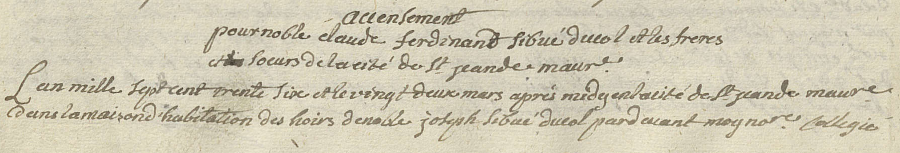 accensement
pour noble claude ferdinant sibué ducol et les freres
et soeurs de la cité de St jean de maur.ne
Lan mille sept cent trente six et le vingt deux mars aprés midy en la cité de St jean de maurne
dans la maison d'habitation des hoirs de noble joseph sibué ducol pardevant moy nore. Collegié